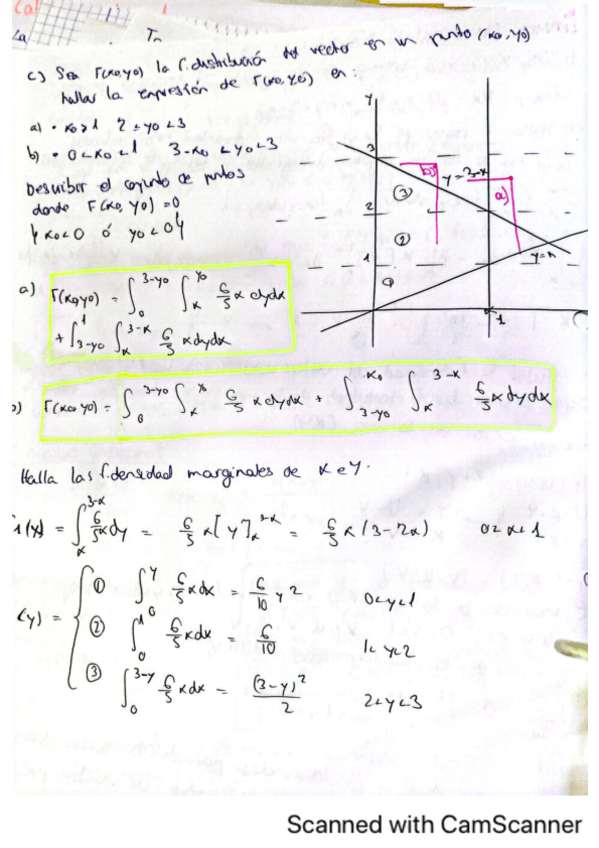 c) Sea F(x₀,y₀) la f. distribución del vector en un punto (x₀,y₀)
hallar la expresión de F(x₀,y₀) en:
a) · x₀>1 2<y₀<3
b) · 0<x₀<1 3-x₀<y₀<3
Describir el conjunto de puntos
donde F(x₀,y₀)=0
{x₀<0 ó y₀<0}
y
3
2
1
b)
y=3-x
a)
③
②
①
y=x
1
a) F(x₀,y₀) = ∫₀^{3-y₀} ∫ₓ^{y₀} 6/5 x dy dx
+ ∫_{3-y₀}^{1} ∫ₓ^{3-x} 6/5 x dy dx
b) F(x₀,y₀) = ∫₀^{3-y₀} ∫ₓ^{y₀} 6/5 x dy dx + ∫_{3-y₀}^{x₀} ∫ₓ^{3-x} 6/5 x dy dx
Halla las f. densidad marginales de X e Y.
(x) = ∫ₓ^{3-x} 6/5 x dy = 6/5 x [y]ₓ^{3-x} = 6/5 x (3-2x) 0<x<1
(y) =
① ∫₀^{y} 6/5 x dx = 6/10 y² 0<y<1
② ∫₀^{1} 6/5 x dx = 6/10 1<y<2
③ ∫₀^{3-y} 6/5 x dx = (3-y)²/2 2<y<3
Scanned with CamScanner